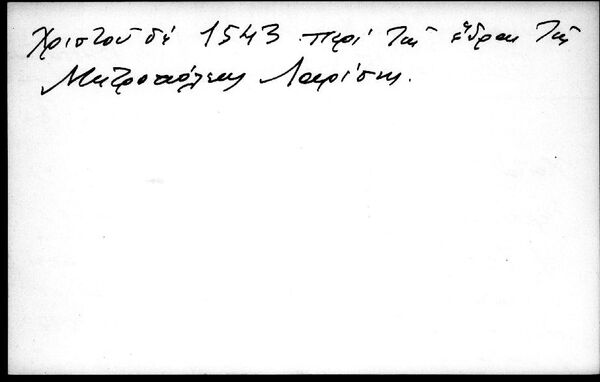 Χριστοῦ δέ 1543 περί τῆς ἕδρας τῆς
Μητροπόλεως Λαρίσης.